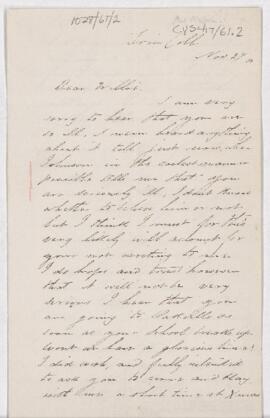 1028/61/2
CYSA/17/61.2
Trin Coll
Nov 27
Dear Willie,
I am very
sorry to hear that you are
so ill, I never heard anything
about it till just now, when
Johnson in the coolest manner
possible tells me that "you
are seriously ill, I don't know
whether to believe him or not
but I think I must for this
very likely will account for
your not writing to me.
I do hope and trust however
that it will not be very
serious. I hear that you
are going to as
soon as your school breaks up.
Wont we have a glorious time!
I did wish, and fully intended
to ask you to come and stay
with here a short time at Xmas